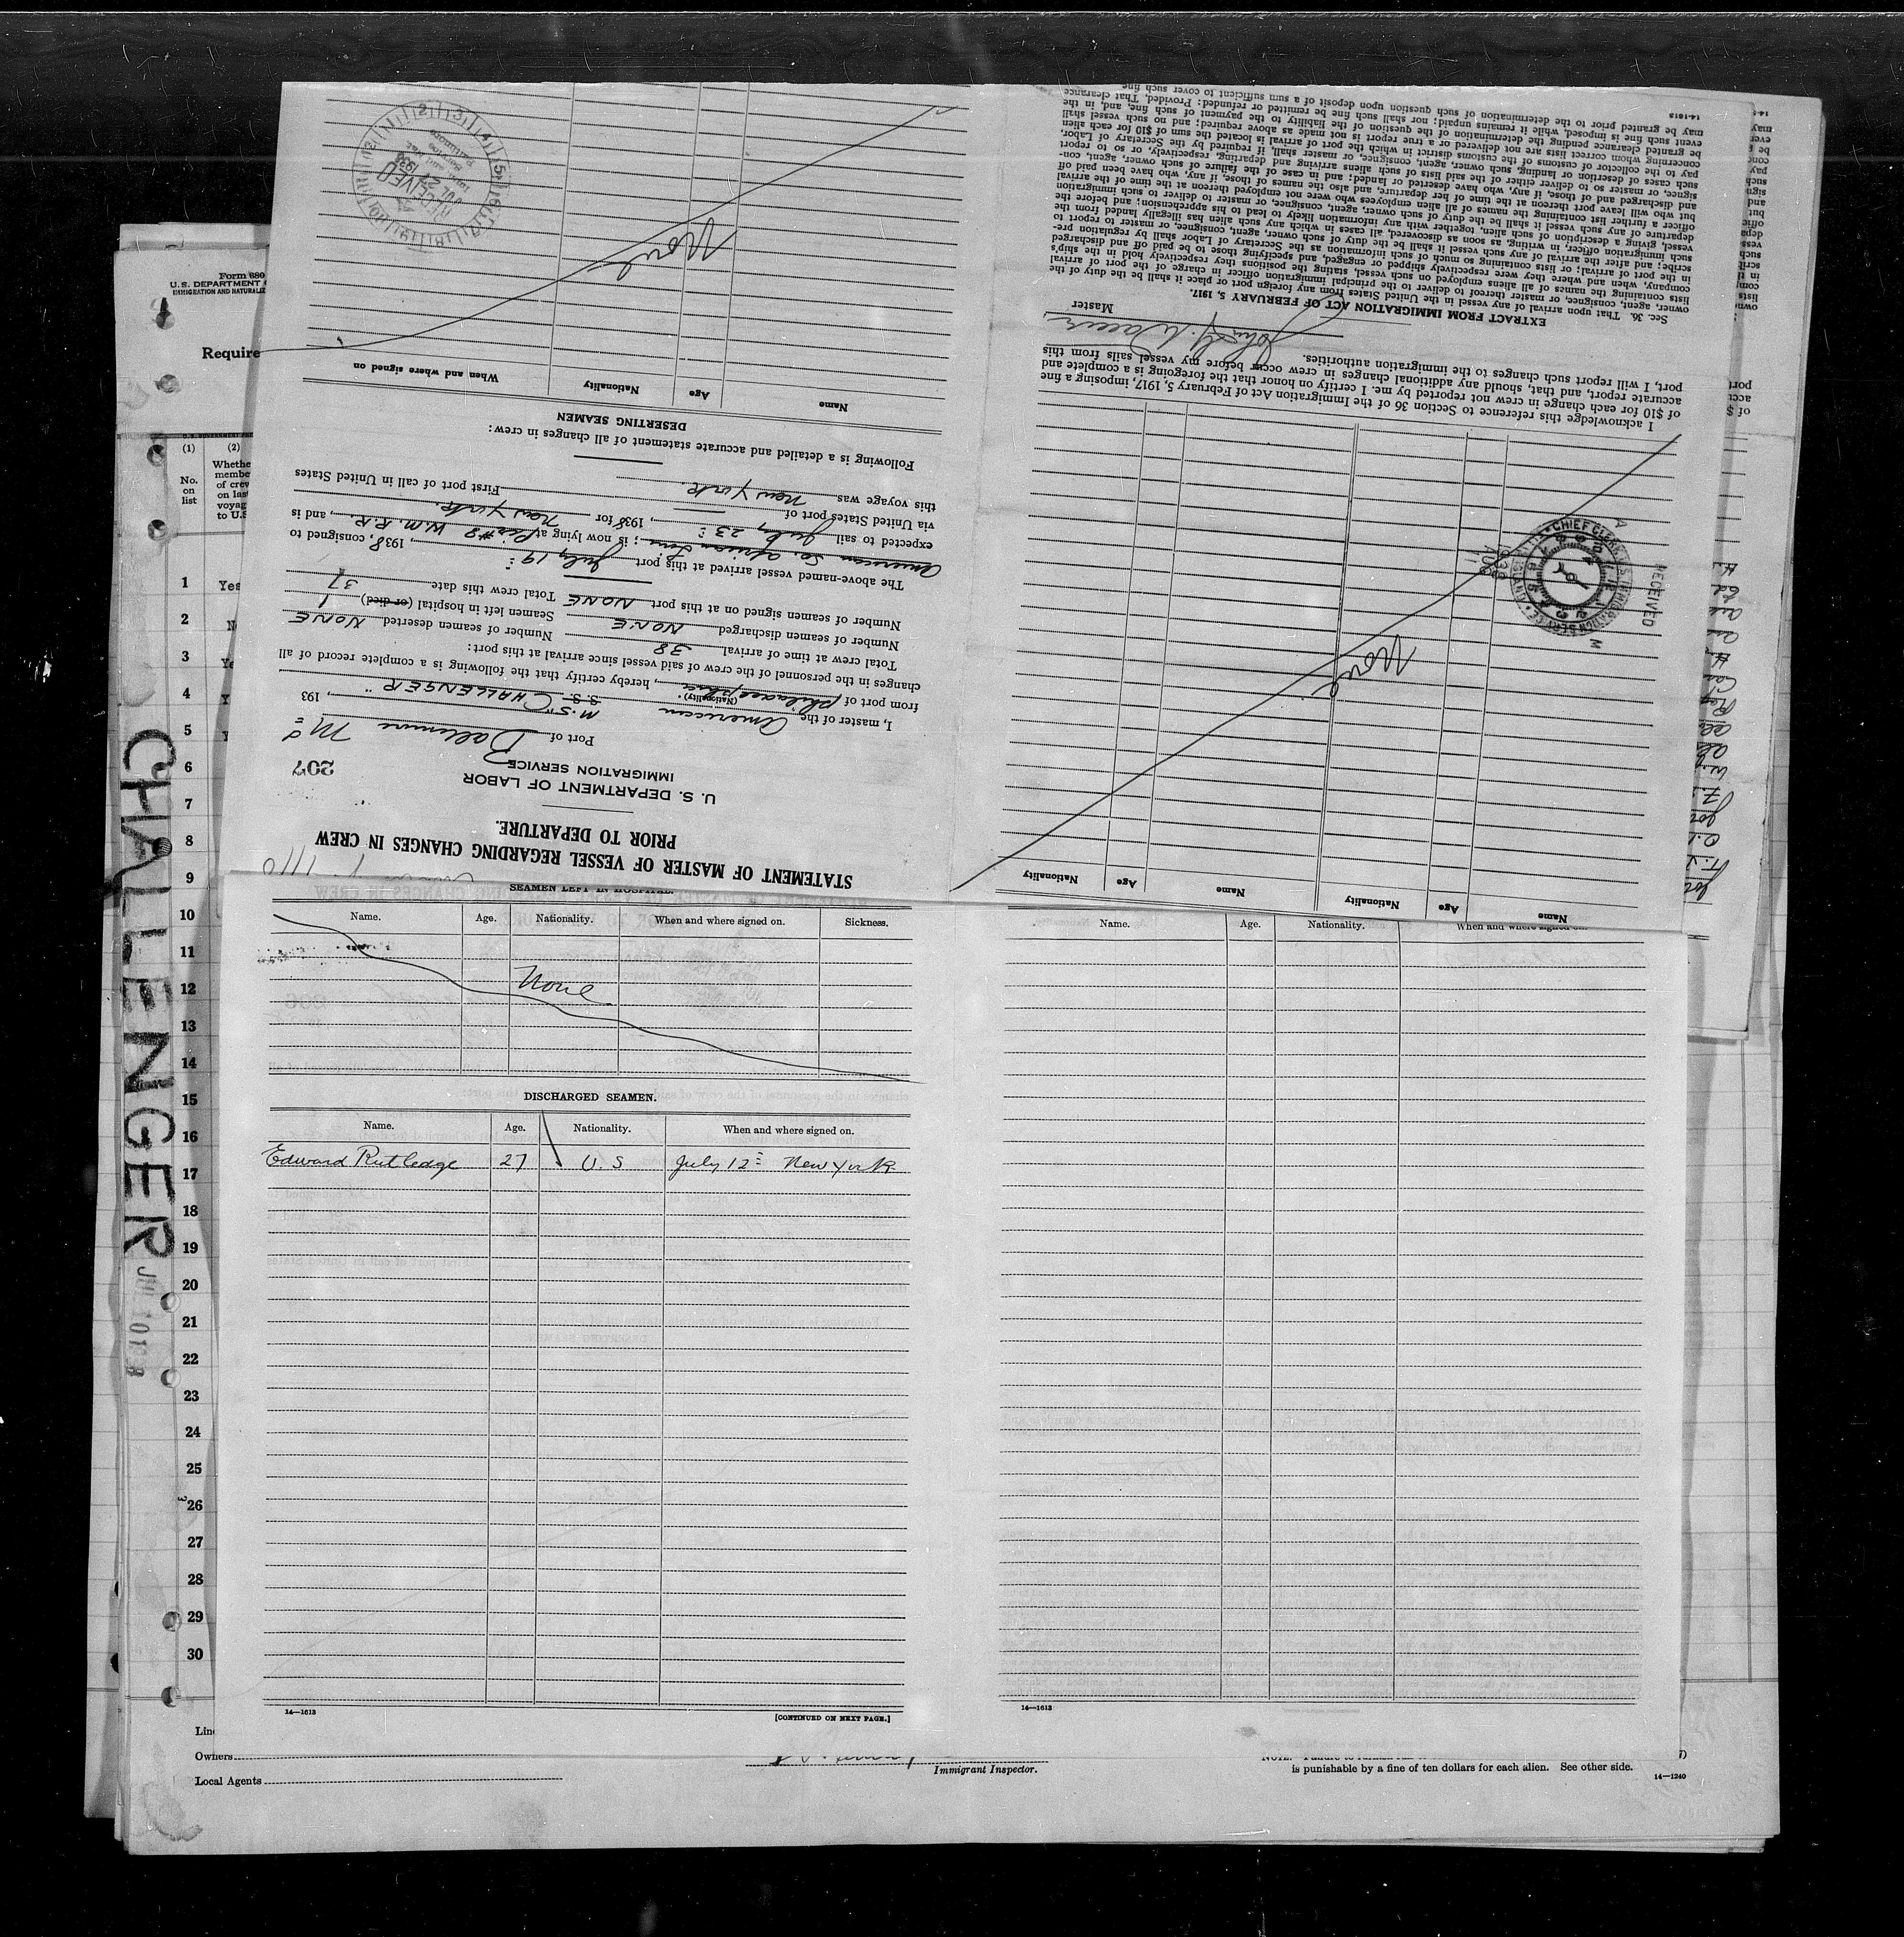 STATEMENT OF MASTER OF VESSEL REGARDING CHANGES IN CREW
PRIOR TO DEPARTURE.
U. S. DEPARTMENT OF LABOR
IMMIGRATION SERVICE
207
Port of Baltimore Md
193
I, master of the American M.S. "CHALLENGER",
(Nationality)
from port of Philadelphia, hereby certify that the following is a complete record of all
changes in the personnel of the crew of said vessel since arrival at this port:
Total crew at time of arrival 38 Number of seamen deserted NONE
Number of seamen discharged NONE Seamen left in hospital (or died) 1
Number of seamen signed on at this port NONE Total crew this date 37
The above-named vessel arrived at this port July 19, 1938, consigned to
American So. African Line; is now lying at Pier #8 W.M.R.R., and is
expected to sail July 23, 1938 for New York.
via United States port of First port of call in United States
this voyage was New York.
Following is a detailed and accurate statement of all changes in crew:
DESERTING SEAMEN
Name Age Nationality When and where signed on
None
RECEIVED
Name Age Nationality Name Age Nationality
None
RECEIVED
CHIEF CLERK
I acknowledge this reference to Section 36 of the Immigration Act of February 5, 1917, imposing a fine
of $10 for each change in crew not reported by me. I certify on honor that the foregoing is a complete and
accurate report, and that, should any additional changes in crew occur before my vessel sails from this
port, I will report such changes to the immigration authorities.
Master
EXTRACT FROM IMMIGRATION ACT OF FEBRUARY 5, 1917.
Sec. 36. That upon arrival of any vessel in the United States from any foreign port or place it shall be the duty of the
owner, agent, consignee, or master thereof to deliver to the principal immigration officer in charge of the port of arrival
lists containing the names of all aliens employed on such vessel, stating the positions they respectively hold in the ship's
company, when and where they were respectively shipped or engaged, and specifying those to be paid off and discharged
in the port of arrival; or lists containing so much of such information as the Secretary of Labor shall by regulation pre-
scribe; and after the arrival of any such vessel it shall be the duty of such owner, agent, consignee, or master to report to
such immigration officer, in writing, as soon as discovered, all cases in which any such alien has illegally landed from the
vessel, giving a description of such alien, together with any information likely to lead to his apprehension; and before the
departure of any such vessel it shall be the duty of such owner, agent, consignee, or master to deliver to such immigration
officer a further list containing the names of all alien employees who were not employed thereon at the time of the arrival
but who will leave port thereon at the time of her departure, and also the names of those, if any, who have been paid off
and discharged and of those, if any, who have deserted or landed; and in case of the failure of such owner, agent, con-
signee, or master so to deliver either of the said lists of such aliens arriving and departing, respectively, or so to report
such cases of desertion or landing, such owner, agent, consignee, or master shall, if required by the Secretary of Labor,
pay to the collector of customs of the customs district in which the port of arrival is located the sum of $10 for each alien
concerning whom correct lists are not delivered or a true report is not made as above required; and no such vessel shall
be granted clearance pending the determination of the question of the liability to the payment of such fine, and, in the
event such fine is imposed, while it remains unpaid; nor shall such fine be remitted or refunded: Provided, That clearance
may be granted prior to the determination of such question upon deposit of a sum sufficient to cover such fine
14-1613
Form 680
U.S. DEPARTMENT
IMMIGRATION AND NATURALIZ
Require
(1) (2)
No. on list
Whethe
membe
of crev
on last
voyag
to U.S
1 Yes
2
3
4
5
6
7
8
9
10
11
12
13
14
15
16
17
18
19
20
21
22
23
24
25
26
27
28
29
30
CHALLENGER
SEAMEN LEFT IN HOSPITAL.
Name. Age. Nationality. When and where signed on. Sickness.
None
DISCHARGED SEAMEN.
Name. Age. Nationality. When and where signed on.
Edward Rutledge 27 U.S July 12 New York
14—1613
[CONTINUED ON NEXT PAGE.]
Name. Age. Nationality. When and where signed on.
14—1613
Owners
Local Agents
Immigrant Inspector.
is punishable by a fine of ten dollars for each alien. See other side.
14—1240